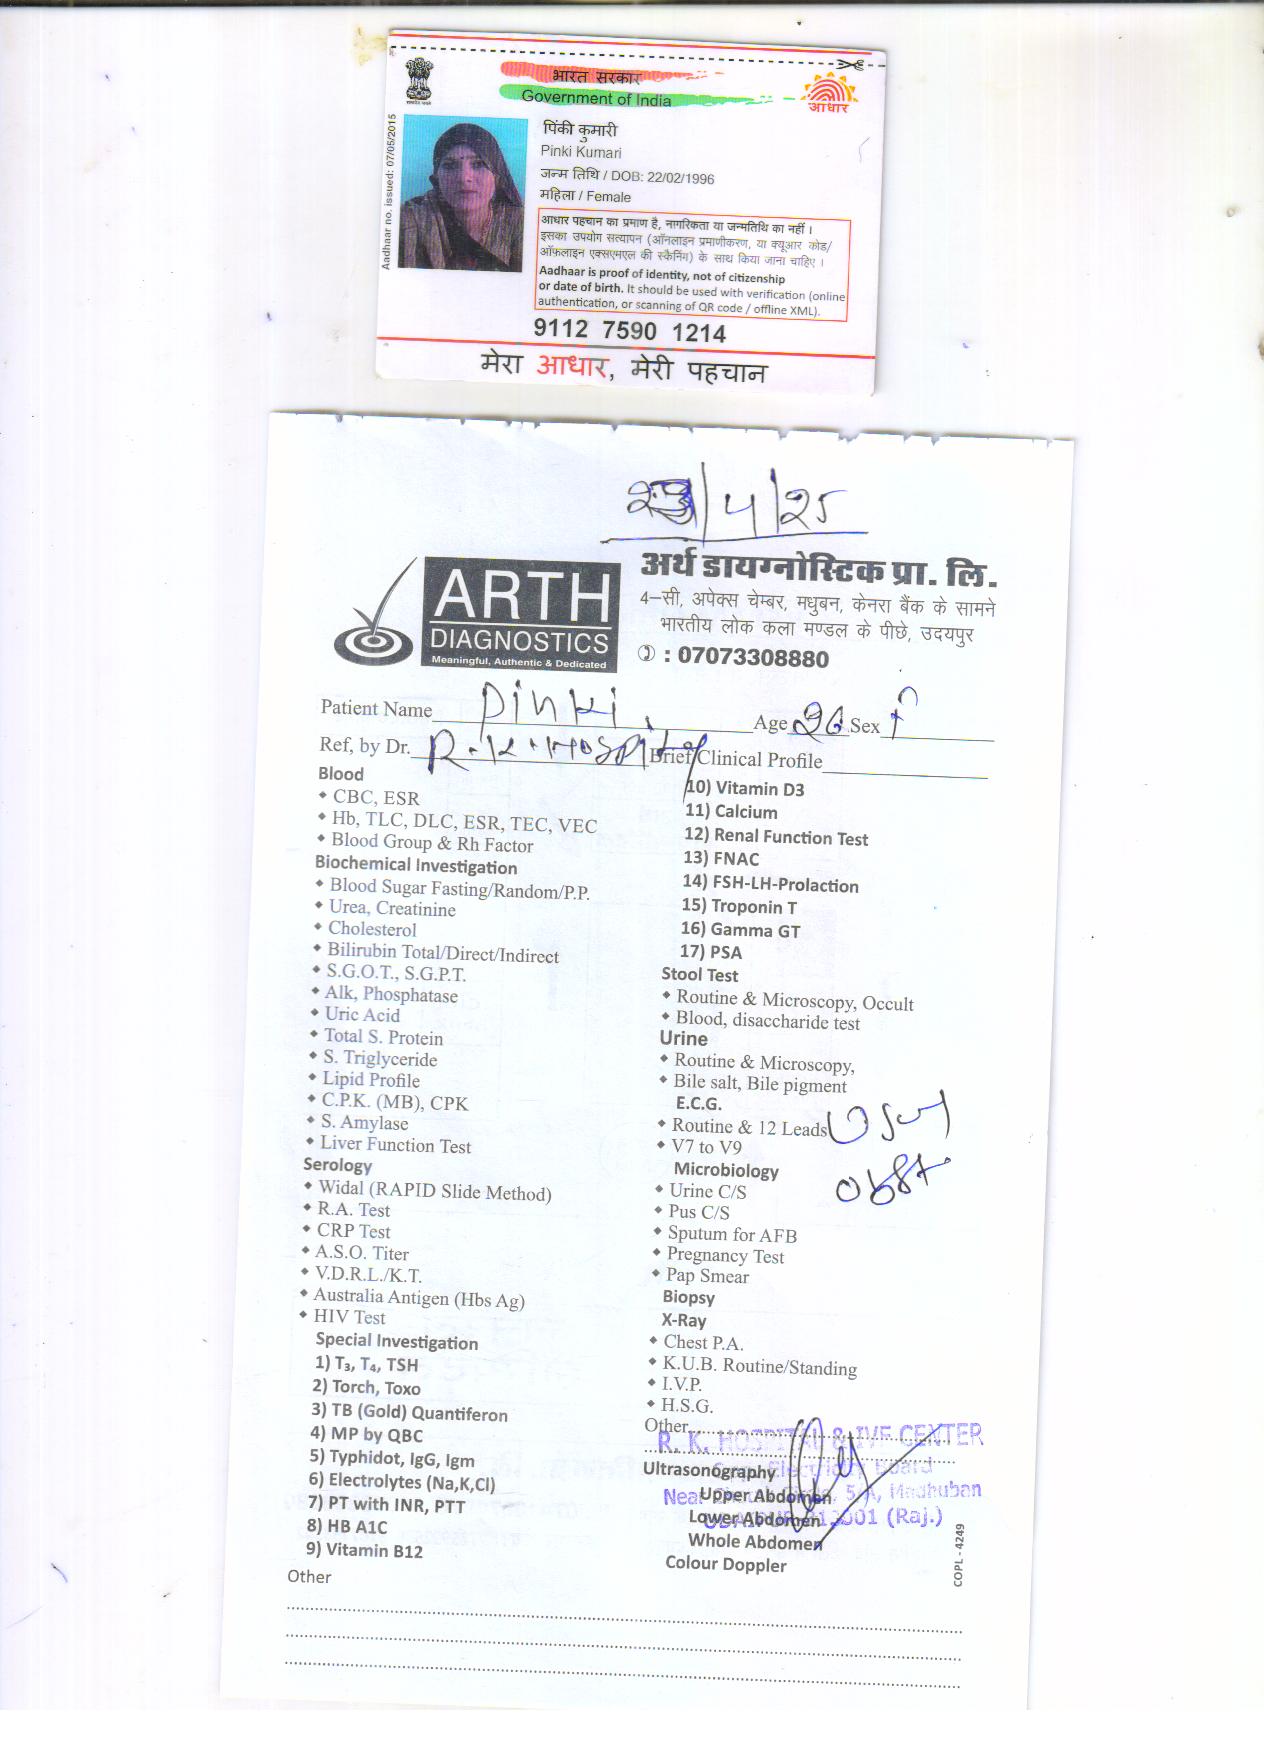 भारत सरकार
Government of India
आधार
Aadhaar no. issued: 07/05/2015
पिंकी कुमारी
Pinki Kumari
जन्म तिथि / DOB: 22/02/1996
महिला / Female
आधार पहचान का प्रमाण है, नागरिकता या जन्मतिथि का नहीं ।
इसका उपयोग सत्यापन (ऑनलाइन प्रमाणीकरण, या क्यूआर कोड/
ऑफ़लाइन एक्सएमएल की स्कैनिंग) के साथ किया जाना चाहिए ।
Aadhaar is proof of identity, not of citizenship
or date of birth. It should be used with verification (online
authentication, or scanning of QR code / offline XML).
9112 7590 1214
मेरा आधार, मेरी पहचान
/4/25
अर्थ डायग्नोस्टिक प्रा. लि.
ARTH
DIAGNOSTICS
Meaningful, Authentic & Dedicated
4-सी, अपेक्स चेम्बर, मधुबन, केनरा बैंक के सामने
भारतीय लोक कला मण्डल के पीछे, उदयपुर
: 07073308880
Patient Name Pinki Age Sex F
Ref, by Dr. R.K. Hospital Brief Clinical Profile
Blood
CBC, ESR
Hb, TLC, DLC, ESR, TEC, VEC
Blood Group & Rh Factor
Biochemical Investigation
Blood Sugar Fasting/Random/P.P.
Urea, Creatinine
Cholesterol
Bilirubin Total/Direct/Indirect
S.G.O.T., S.G.P.T.
Alk, Phosphatase
Uric Acid
Total S. Protein
S. Triglyceride
Lipid Profile
C.P.K. (MB), CPK
S. Amylase
Liver Function Test
Serology
Widal (RAPID Slide Method)
R.A. Test
CRP Test
A.S.O. Titer
V.D.R.L./K.T.
Australia Antigen (Hbs Ag)
HIV Test
Special Investigation
1) T₃, T₄, TSH
2) Torch, Toxo
3) TB (Gold) Quantiferon
4) MP by QBC
5) Typhidot, IgG, Igm
6) Electrolytes (Na,K,Cl)
7) PT with INR, PTT
8) HB A1C
9) Vitamin B12
Other
10) Vitamin D3
11) Calcium
12) Renal Function Test
13) FNAC
14) FSH-LH-Prolaction
15) Troponin T
16) Gamma GT
17) PSA
Stool Test
Routine & Microscopy, Occult
Blood, disaccharide test
Urine
Routine & Microscopy,
Bile salt, Bile pigment
E.C.G.
Routine & 12 Leads
V7 to V9
USG
Obst.
Microbiology
Urine C/S
Pus C/S
Sputum for AFB
Pregnancy Test
Pap Smear
Biopsy
X-Ray
Chest P.A.
K.U.B. Routine/Standing
I.V.P.
H.S.G.
Other
R. K. HOSPITAL & IVF CENTER
Opp. Electricity Board
Near 5/A, Madhuban
UDAIPUR-313001 (Raj.)
Ultrasonography
Upper Abdomen
Lower Abdomen
Whole Abdomen
Colour Doppler
COPL - 4249